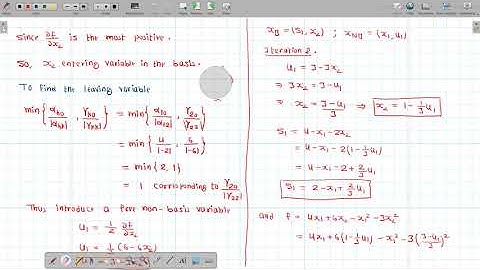 Since ∂f/∂x₂ is the most positive.
So, x₂ entering variable in the basis.
To find the leaving variable
min{α_k0/|α_kp|, γ_20/|γ_22|} = min{α_10/|α_12|, γ_20/|γ_22|}
= min{4/|-2|, 6/|-6|}
= min{2, 1}
= 1 corresponding to γ_20/|γ_22|
Thus introduce a free non-basis variable
u₁ = 1/2 ∂f/∂x₂
u₁ = 1/2 (6-6x₂)
x_B = (S₁, x₂) ; x_NB = (x₁, u₁)
Iteration 2.
u₁ = 3-3x₂
⇒ 3x₂ = 3-u₁
⇒ x₂ = (3-u₁)/3 ⇒ x₂ = 1 - 1/3 u₁
S₁ = 4-x₁-2x₂
= 4-x₁-2(1-1/3 u₁)
= 4-x₁-2+2/3 u₁
S₁ = 2-x₁+2/3 u₁
and f = 4x₁+6x₂-x₁²-3x₂²
= 4x₁+6(1-1/3 u₁)-x₁²-3((3-u₁)/3)²